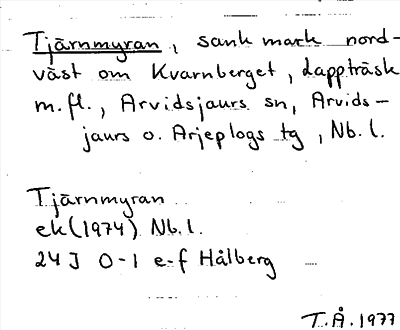 Tjärnmyran, sank mark nord-
väst om Kvarnberget, Lappträsk
m.fl., Arvidsjaurs sn, Arvids-
jaurs o. Arjeplogs tg, Nb. l.
Tjärnmyran
ek (1974) Nb. l.
24 J 0-1 e-f Hålberg
T.Å. 1977